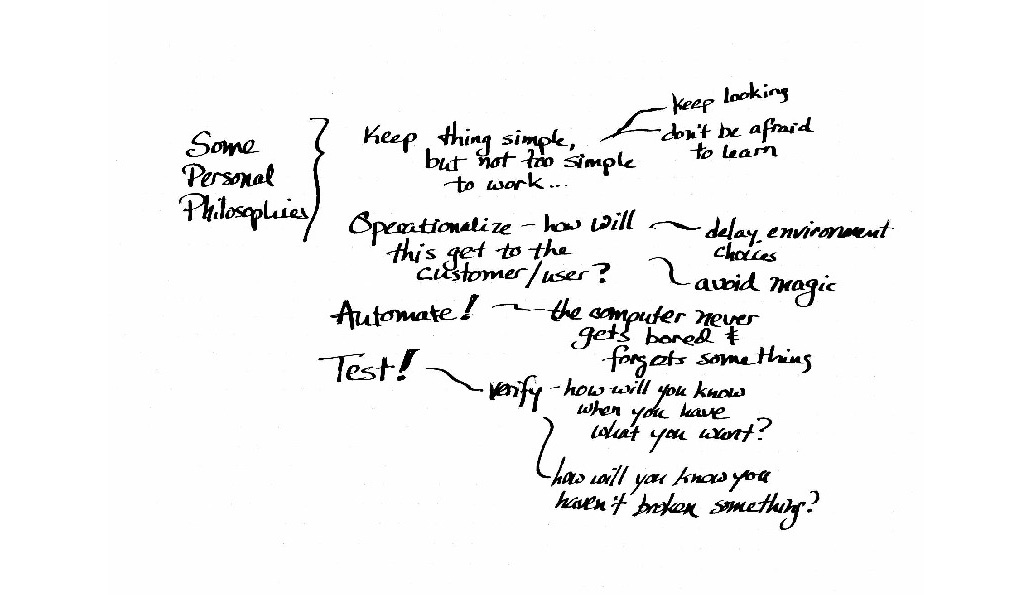 Some
Personal
Philosophies
Keep thing simple,
but not too simple
to work...
keep looking
don't be afraid
to learn
Operationalize - how will
this get to the
customer/user?
delay environment
choices
avoid magic
Automate!
the computer never
gets bored &
forgets something
Test!
verify - how will you know
when you have
what you want?
how will you know you
haven't broken something?